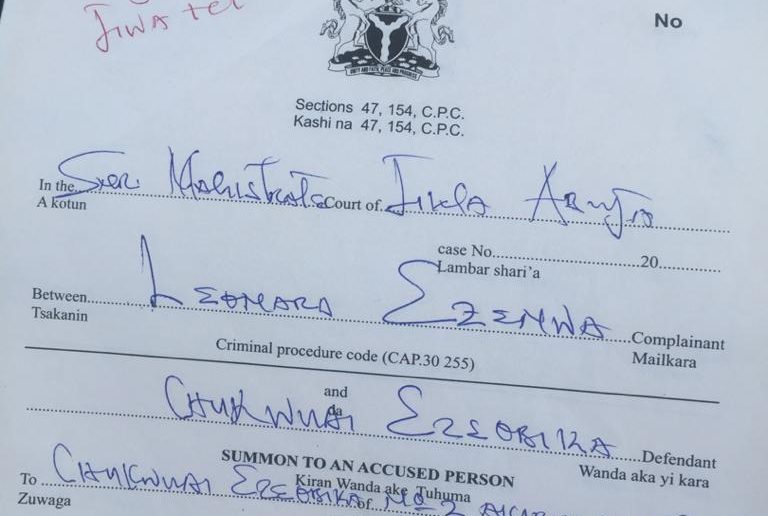 Jiwa tel
No
UNITY AND FAITH, PEACE AND PROGRESS
Sections 47, 154, C.P.C.
Kashi na 47, 154, C.P.C.
In the Court of Abuja
A kotun
case No. 20
Lambar shari'a
Between Leonara Ezenwa Complainant
Tsakanin Mailkara
Criminal procedure code (CAP.30 255)
and
da
Ezeobika Defendant
Wanda aka yi kara
SUMMON TO AN ACCUSED PERSON
Kiran Wanda ake Tuhuma
To Ezeobika No 2 of
Zuwaga